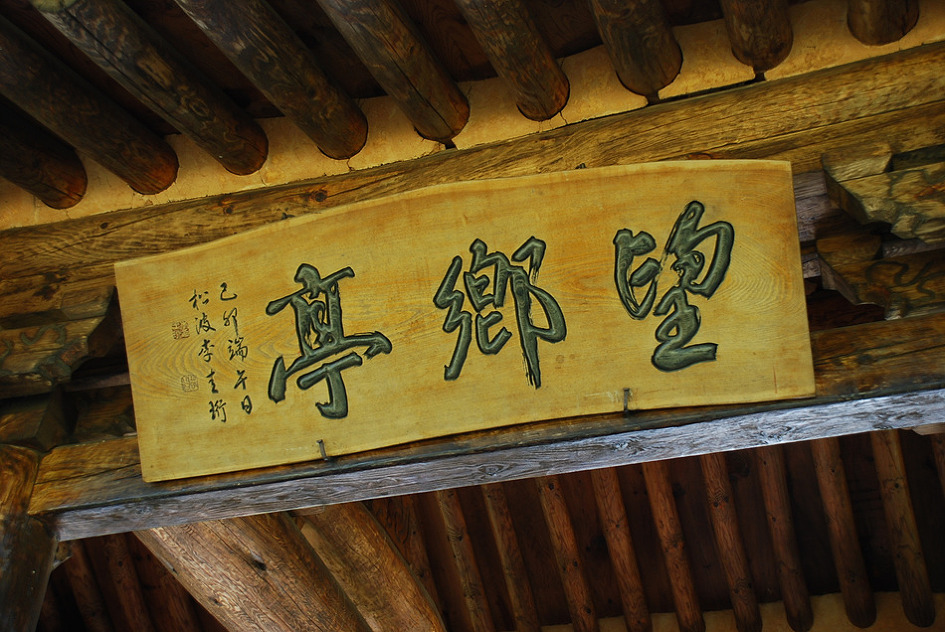 望鄉亭
己卯端午日
松波李圭珩